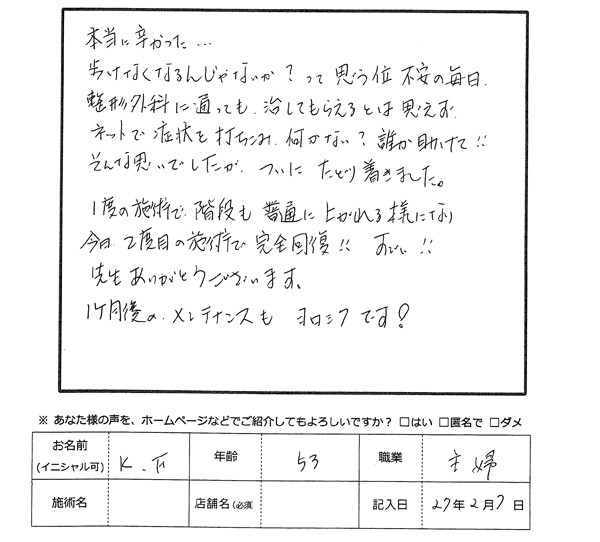 本当に辛かった…
歩けなくなるんじゃないか？って思う位 不安の毎日.
整形外科に通っても、治してもらえるとは思えず.
ネットで症状を打ちこみ、何かない？誰か助けて!!
そんな思いでしたが、ついにたどり着きました。
1度の施術で、階段も普通に上がれる様になり
今日、2度目の施術で完全回復!! すごい!!
先生ありがとうございます。
1ヶ月後の、メンテナンスも ヨロシクです!
※ あなた様の声を、ホームページなどでご紹介してもよろしいですか？ □はい □匿名で □ダメ
お名前 (イニシャル可) K.F 年齢 53 職業 主婦
施術名 店舗名(必須 記入日 27年2月7日